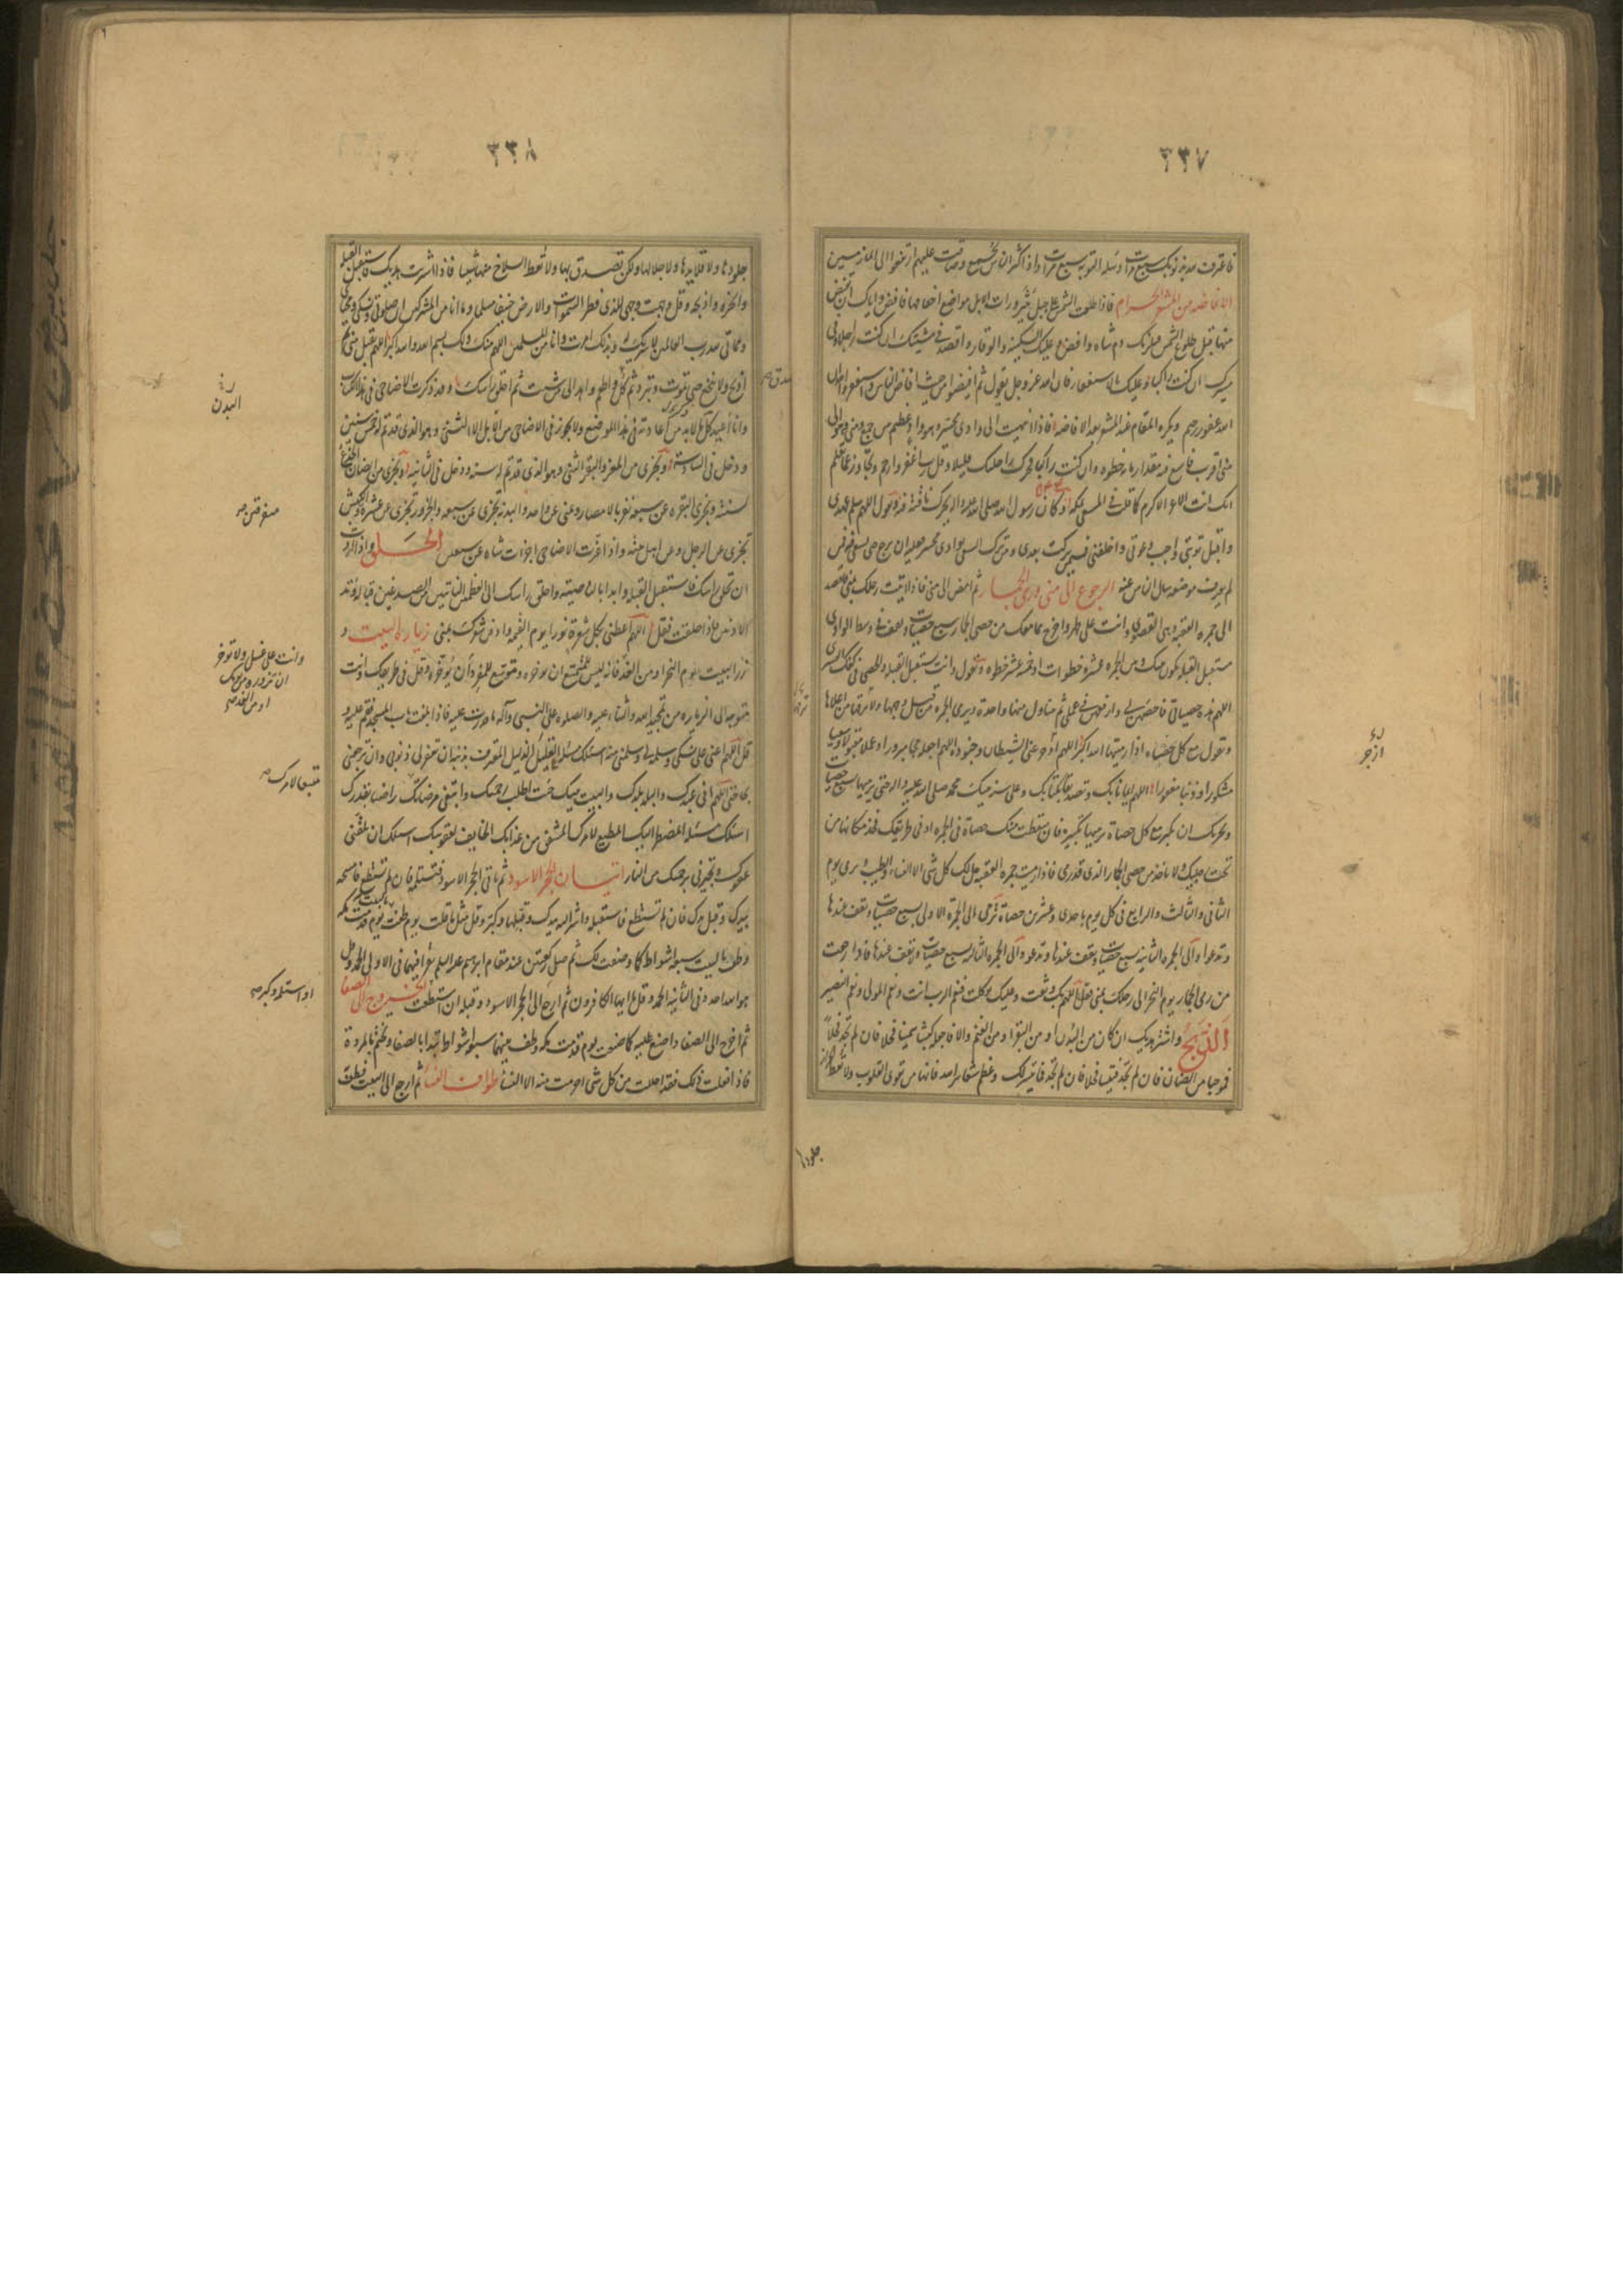 ٣٣٧
فاعترفت معه بذنوبك سبع مرات وتسئله التوبة سبع مرات واذا كثر الناس بجمع وضاقت عليهم ارتفعوا الى المازمين
الافاضه من المشعر الحرام فاذا طلعت الشمس على جبل ثبير ورات الابل مواضع اخفافها فافض واياك ان تفيض
منها قبل طلوع الشمس فيلزمك دم شاه وافض وعليك السكينه والوقار واقصد في مشيتك ان كنت راجلا وفي
مسيرك ان كنت راكبا وعليك بالاستغفار فان الله عز وجل يقول ثم افيضوا من حيث افاض الناس واستغفروا الله ان
الله غفور رحيم ويكره المقام عند المشعر بعد الافاضه فاذا انتهيت الى وادى محسر وهو واد عظيم بين جمع ومنى وهو الى
منى اقرب فاسع فيه مقدار مايه خطوه وان كنت راكبا فحرك راحلتك قليلا وقل رب اغفر وارحم وتجاوز عما تعلم
انك انت الاعز الاكرم كما قلت في المسعى بمكه وكان رسول الله صلى الله عليه واله يحرك ناقته فيه ويقول اللهم سلم عهدى
واقبل توبتى واجب دعوتى واخلفنى فيمن تركت بعدى ومن ترك السعى بوادى محسر فعليه ان يرجع حتى يسعى فيه فمن
لم يعرف موضعه سال الناس عنه الرجوع الى منى ورمى الجمار ثم امض الى منى فاذا اتيت رحلك بمنى فاقصد
الى جمره العقبه وهى القصوى وانت على طهر واخرج مما معك من حصى الجمار سبع حصيات وتقف في وسط الوادى
مستقبل القبله يكون بينك وبين الجمره عشر خطوات او خمسه عشر خطوه وتقول وانت مستقبل القبله والحصى في كفك اليسرى
اللهم هذه حصياتى فاحصهن لى وارفعهن في عملى ثم تتناول منها واحدة وترمى الجمره من قبل وجهها ولا ترمها من اعلاها
وتقول مع كل حصاه اذا رميتها الله اكبر اللهم ادحر عنى الشيطان وجنوده اللهم اجعله حجا مبرورا وعملا مقبولا وسعيا
مشكورا وذنبا مغفورا اللهم ايمانا بك وتصديقا بكتابك وعلى سنة نبيك محمد صلى الله عليه واله حتى ترميها بسبع حصيات
ويجزيك ان تكبر مع كل حصاة ترميها تكبيرة فان سقطت منك حصاة في الجمره او في طريقك فخذ مكانها من
تحت رجليك ولا تاخذ من حصى الجمار الذى قد رمى فاذا رميت جمره العقبه حل لك كل شى الا النساء والطيب وترمى يوم
الثانى والثالث والرابع فى كل يوم باحدى وعشرين حصاة ترمى الى الجمرة الاولى بسبع حصيات وتقف عندها
وتدعوا والى الجمره الثانيه سبع حصيات وتقف عندها وتدعو والى الجمره الثالثه بسبع حصيات ولا تقف عندها فاذا رجعت
من رمى الجمار يوم النحر الى رحلك بمنى فقل اللهم بك وثقت وعليك توكلت فنعم الرب انت ونعم المولى ونعم النصير
الذبح واشتر هديك ان كان من البدن او من البقر او من الغنم والا فاجعله كبشا سمينا فحلا فان لم تجد فحلا
فموجيا من الضان فان لم تجد فتيسا فحلا فان لم تجد فما تيسر لك وعظم شعاير الله فانها من تقوى القلوب ولا تعط الجزار
جلودها
ازجر
٣٣٨
جلودها ولا قلايدها ولا جلالها ولكن تصدق بها ولا تعط السلاخ منها شيئا فاذا اشتريت هديك فاستقبل القبله
وانحره واذبحه وقل وجهت وجهى للذى فطر السموات والارض حنيفا مسلما وما انا من المشركين ان صلوتى ونسكى ومحياى
ومماتى لله رب العالمين لا شريك له وبذلك امرت وانا من المسلمين اللهم منك ولك بسم الله والله اكبر اللهم تقبل منى ثم
اذبح ولا تنخع حتى تموت وتبرد ثم كل واطعم واهد الى من شئت ثم احلق راسك وقد ذكرت الاضاحى فى هذا الكتاب
وانا اعيد ذكرها لا بد من اعادته فى هذا الموضع ولا يجوز فى الاضاحى من الابل الا الثنى وهو الذى قد تم له خمس سنين
ودخل فى السادسة ويجزى من المعز والبقر الثنى وهو الذى قد تم له سنه ودخل فى الثانيه ويجزى من الضان الجذع
لسنته وتجزى البقره عن سبعه نفر بالامصار وعنى عن واحد والبدنه تجزى عن سبعه والجزور تجزى عن عشره والكبش
تجزى عن الرجل وعن اهل بيته واذا عزت الاضاحى اجزات شاه عن سبعين الحلق واذا اردت
ان تحلق راسك فاستقبل القبله وابدا بالناصيه واحلق راسك الى العظمين النابتين من الصدغين قباله وتد
الاذنين فاذا حلقت فقل اللهم اعطنى بكل شعرة نورا يوم القيمه وادفن شعرك بمنى زياره البيت و
زر البيت يوم النحر او من الغد فانه ليس للمتمتع ان يوخره وموسع للمفرد ان يوخره وقل فى طريقك وانت
متوجه الى الزياره من تمجيد الله والثناء عليه والصلوه على النبى وآله ما قدرت عليه فاذا بلغت باب المسجد فقم عليه و
قل اللهم اعنى على نسكى وسلمه لى وسلمنى منه اسئلك مسئله العليل الذليل المعترف بذنبه ان تغفر لى ذنوبى وان ترجعنى
بحاجتى اللهم انى عبدك والبلد بلدك والبيت بيتك جئت اطلب رحمتك وابتغى مرضاتك راضيا بقدرك
اسئلك مسئله المضطر اليك المطيع لامرك المشفق من عذابك الخايف لعقوبتك اسئلك ان تلقنى
عفوك وتجيرنى برحمتك من النار اتيان الحجر الاسود ثم تاتى الحجر الاسود فتستلمه فان لم تستطع فامسحه
بيدك وقبل يدك فان لم تستطع فاستقبله واشر اليه بيدك وقبلها وكبر وقل مثل ما قلت يوم طفت بالبيت يوم قدمت مكه
وطف بالبيت سبعه اشواط كما وصفت لك ثم صل ركعتين عند مقام ابرهيم عليه السلم تقرا فيهما فى الاولى الحمد وقل
هو الله احد وفى الثانيه الحمد وقل يا ايها الكافرون ثم ارجع الى الحجر الاسود وقبله ان استطعت الخروج الى الصفا
ثم اخرج الى الصفا واصنع عليه كما صنعت يوم قدمت مكه وطف بينهما سبعه اشواط تبدا بالصفا وتختم بالمروة
فاذا فعلت ذلك فقد احللت من كل شى احرمت منه الا النساء طواف النساء ثم ارجع الى البيت فطف
البدن
متفرقين
وانت على غسل ولا توخر
ان تزوره من يومك
او من الغد
متبعا لامرك
او استلمه وكبر